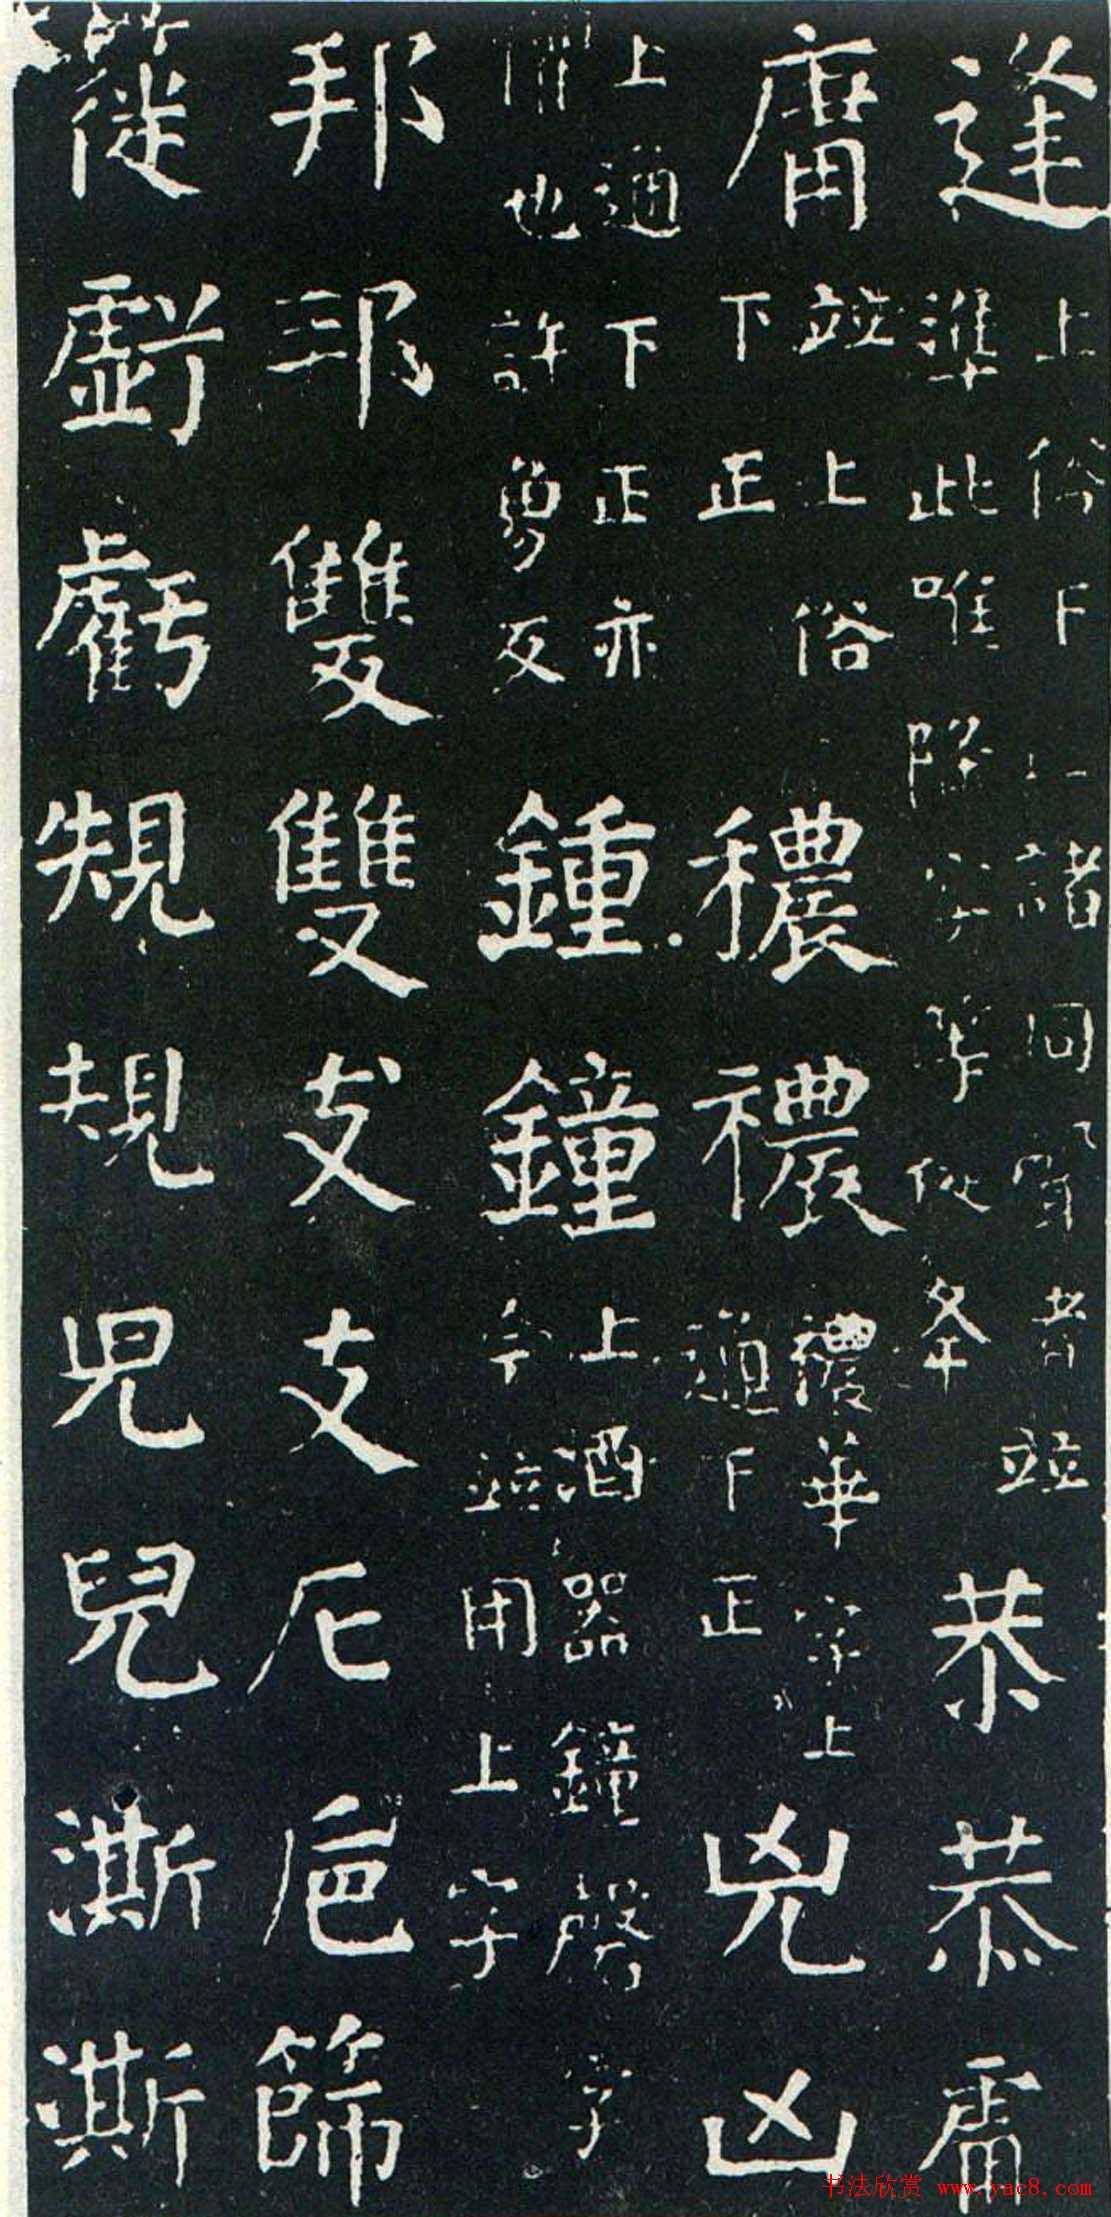 逢上俗下正諸同聲者並準此唯降字等從夅恭恭庸
庸並上俗下正穠禯穠華字上通下正兇凶
上通下正亦懼也許勇反鍾鐘上酒器鐘磬字今並用上字
邦邦雙雙支支卮巵篩
簁虧虧規規兒兒澌澌
书法欣赏 www.yac8.com